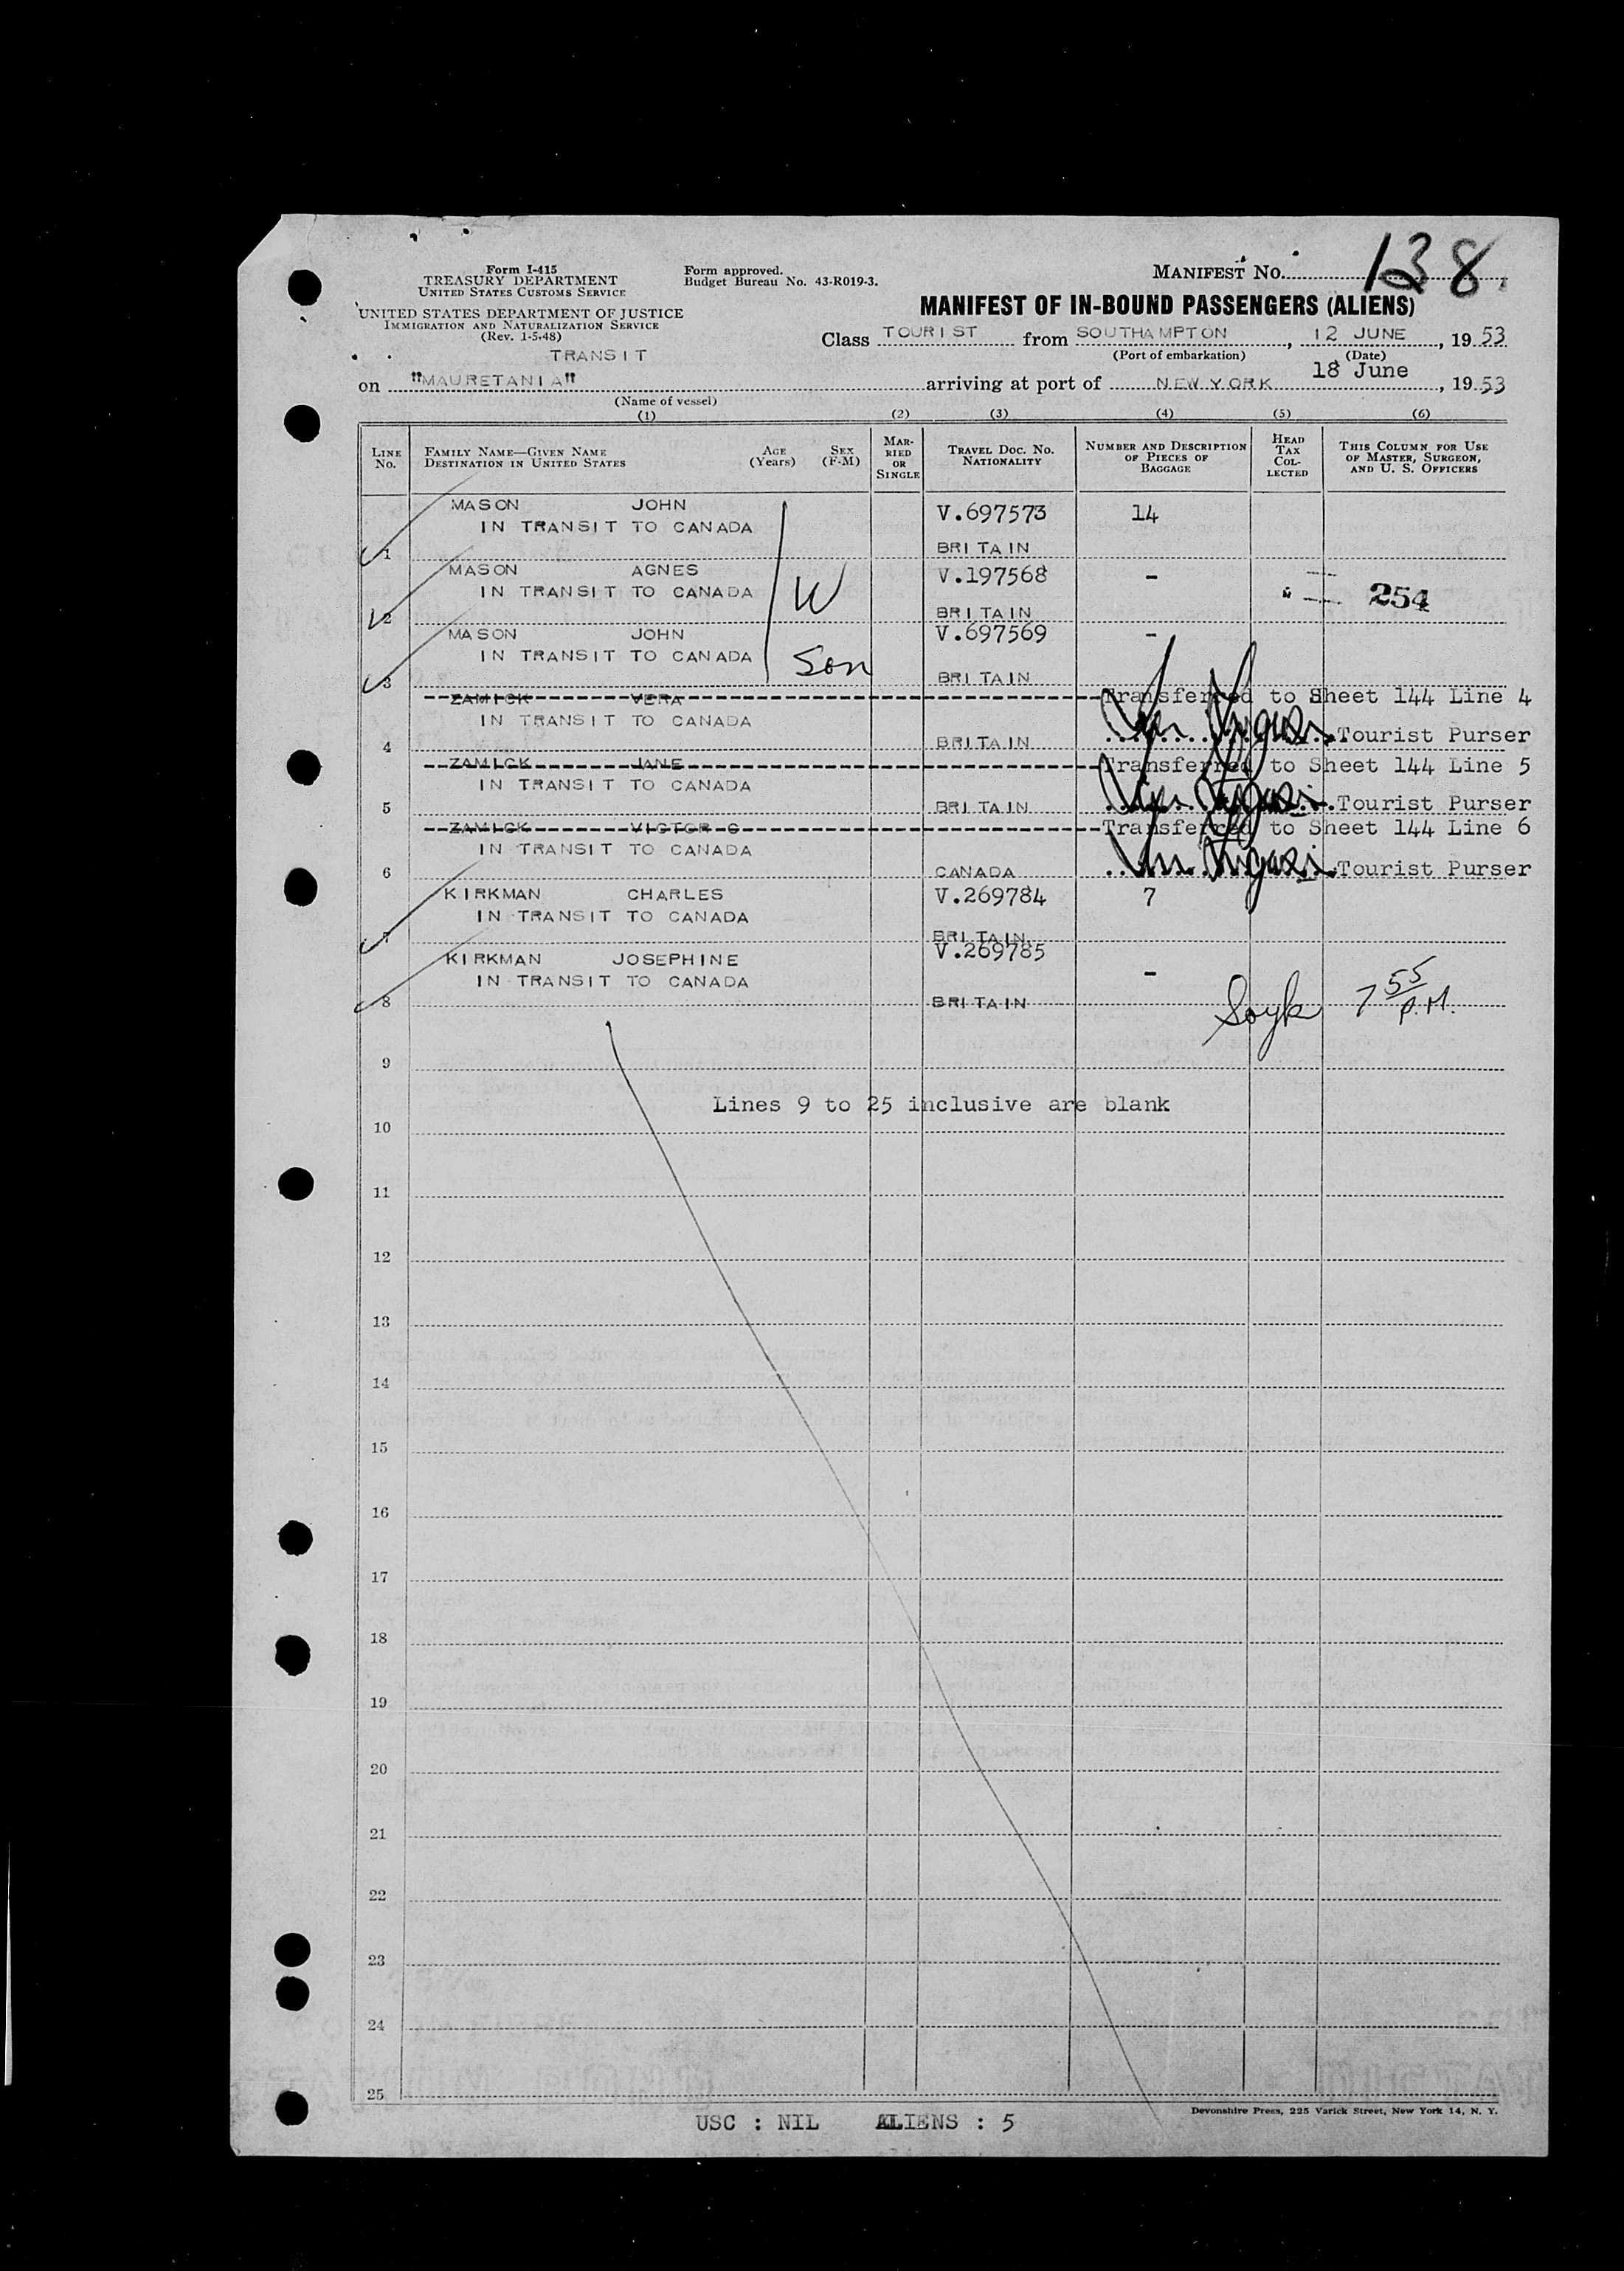 Form I-415
TREASURY DEPARTMENT
UNITED STATES CUSTOMS SERVICE
UNITED STATES DEPARTMENT OF JUSTICE
IMMIGRATION AND NATURALIZATION SERVICE
(Rev. 1-5-48)
Form approved.
Budget Bureau No. 43-R019-3.
MANIFEST NO. 138
MANIFEST OF IN-BOUND PASSENGERS (ALIENS)
Class TOURIST from SOUTHAMPTON, 12 JUNE, 19 53
(Port of embarkation) (Date)
TRANSIT
18 June
on "MAURETANIA" arriving at port of NEW YORK, 19 53
(Name of vessel)
(1) (2) (3) (4) (5) (6)
LINE NO. FAMILY NAME—GIVEN NAME DESTINATION IN UNITED STATES AGE (Years) SEX (F-M) MARRIED OR SINGLE TRAVEL DOC. NO. NATIONALITY NUMBER AND DESCRIPTION OF PIECES OF BAGGAGE HEAD TAX COLLECTED THIS COLUMN FOR USE OF MASTER, SURGEON, AND U. S. OFFICERS
MASON JOHN V.697573 14
IN TRANSIT TO CANADA
1 BRITAIN
MASON AGNES V.197568 -
IN TRANSIT TO CANADA W 254
2 BRITAIN
MASON JOHN V.697569 -
IN TRANSIT TO CANADA Son
3 BRITAIN
ZAMICK VERA Transferred to Sheet 144 Line 4
IN TRANSIT TO CANADA
4 BRITAIN Tourist Purser
ZAMICK JANE Transferred to Sheet 144 Line 5
IN TRANSIT TO CANADA
5 BRITAIN Tourist Purser
ZAMICK VICTOR C Transferred to Sheet 144 Line 6
IN TRANSIT TO CANADA
6 CANADA Tourist Purser
KIRKMAN CHARLES V.269784 7
IN TRANSIT TO CANADA
7 BRITAIN
KIRKMAN JOSEPHINE V.269785
IN TRANSIT TO CANADA -
8 BRITAIN 7 55 P.M.
9
Lines 9 to 25 inclusive are blank
10
11
12
13
14
15
16
17
18
19
20
21
22
23
24
25
Devonshire Press, 225 Varick Street, New York 14, N. Y.
USC : NIL ALIENS : 5